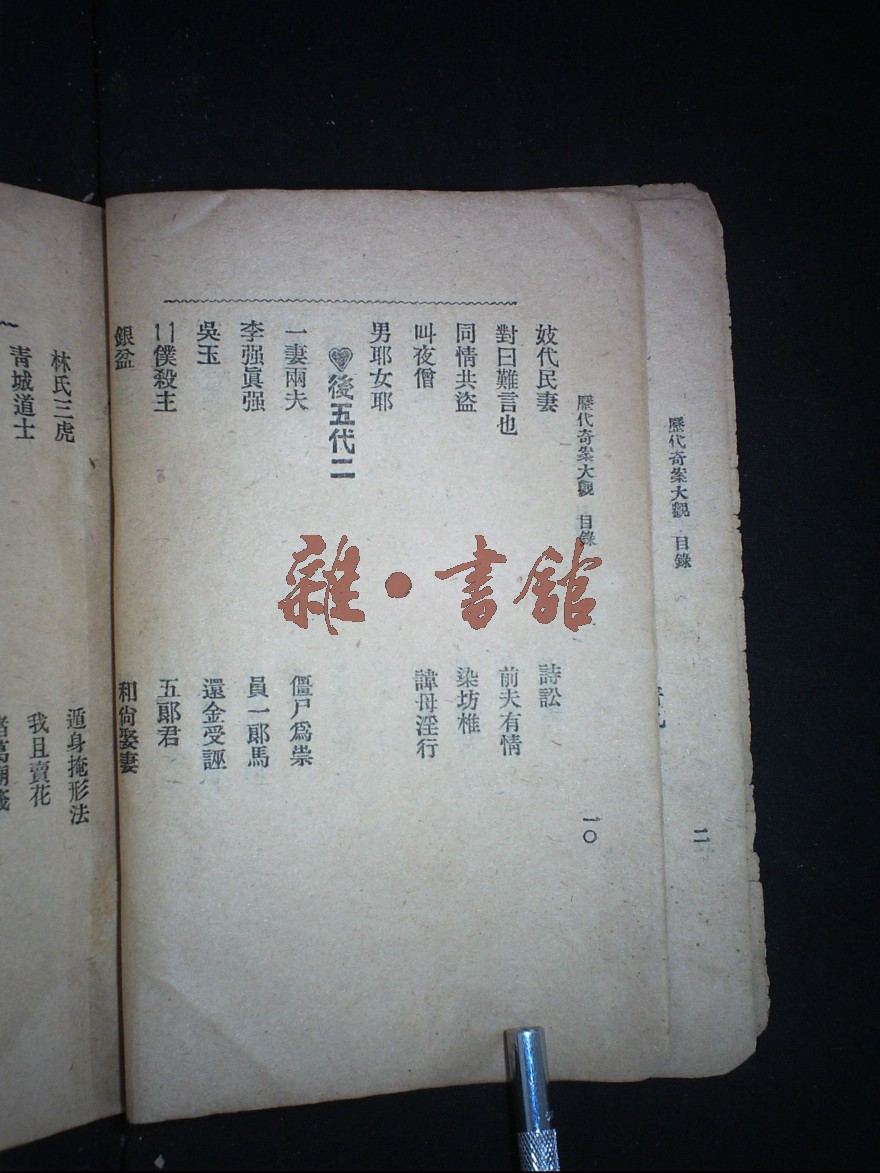 歷代奇案大觀 目錄 二
歷代奇案大觀 目錄 一〇
妓代民妻 詩訟
對曰難言也 前夫有情
同情共盜 染坊椎
叫夜僧 諱母淫行
男耶女耶
後五代二
一妻兩夫 僵尸爲祟
李强眞强 員一郞馬
吳玉 還金受誣
二僕殺主 五郞君
銀盆 和尙娶妻
林氏三虎 遁身掩形法
靑城道士 我且賣花
雜·書館